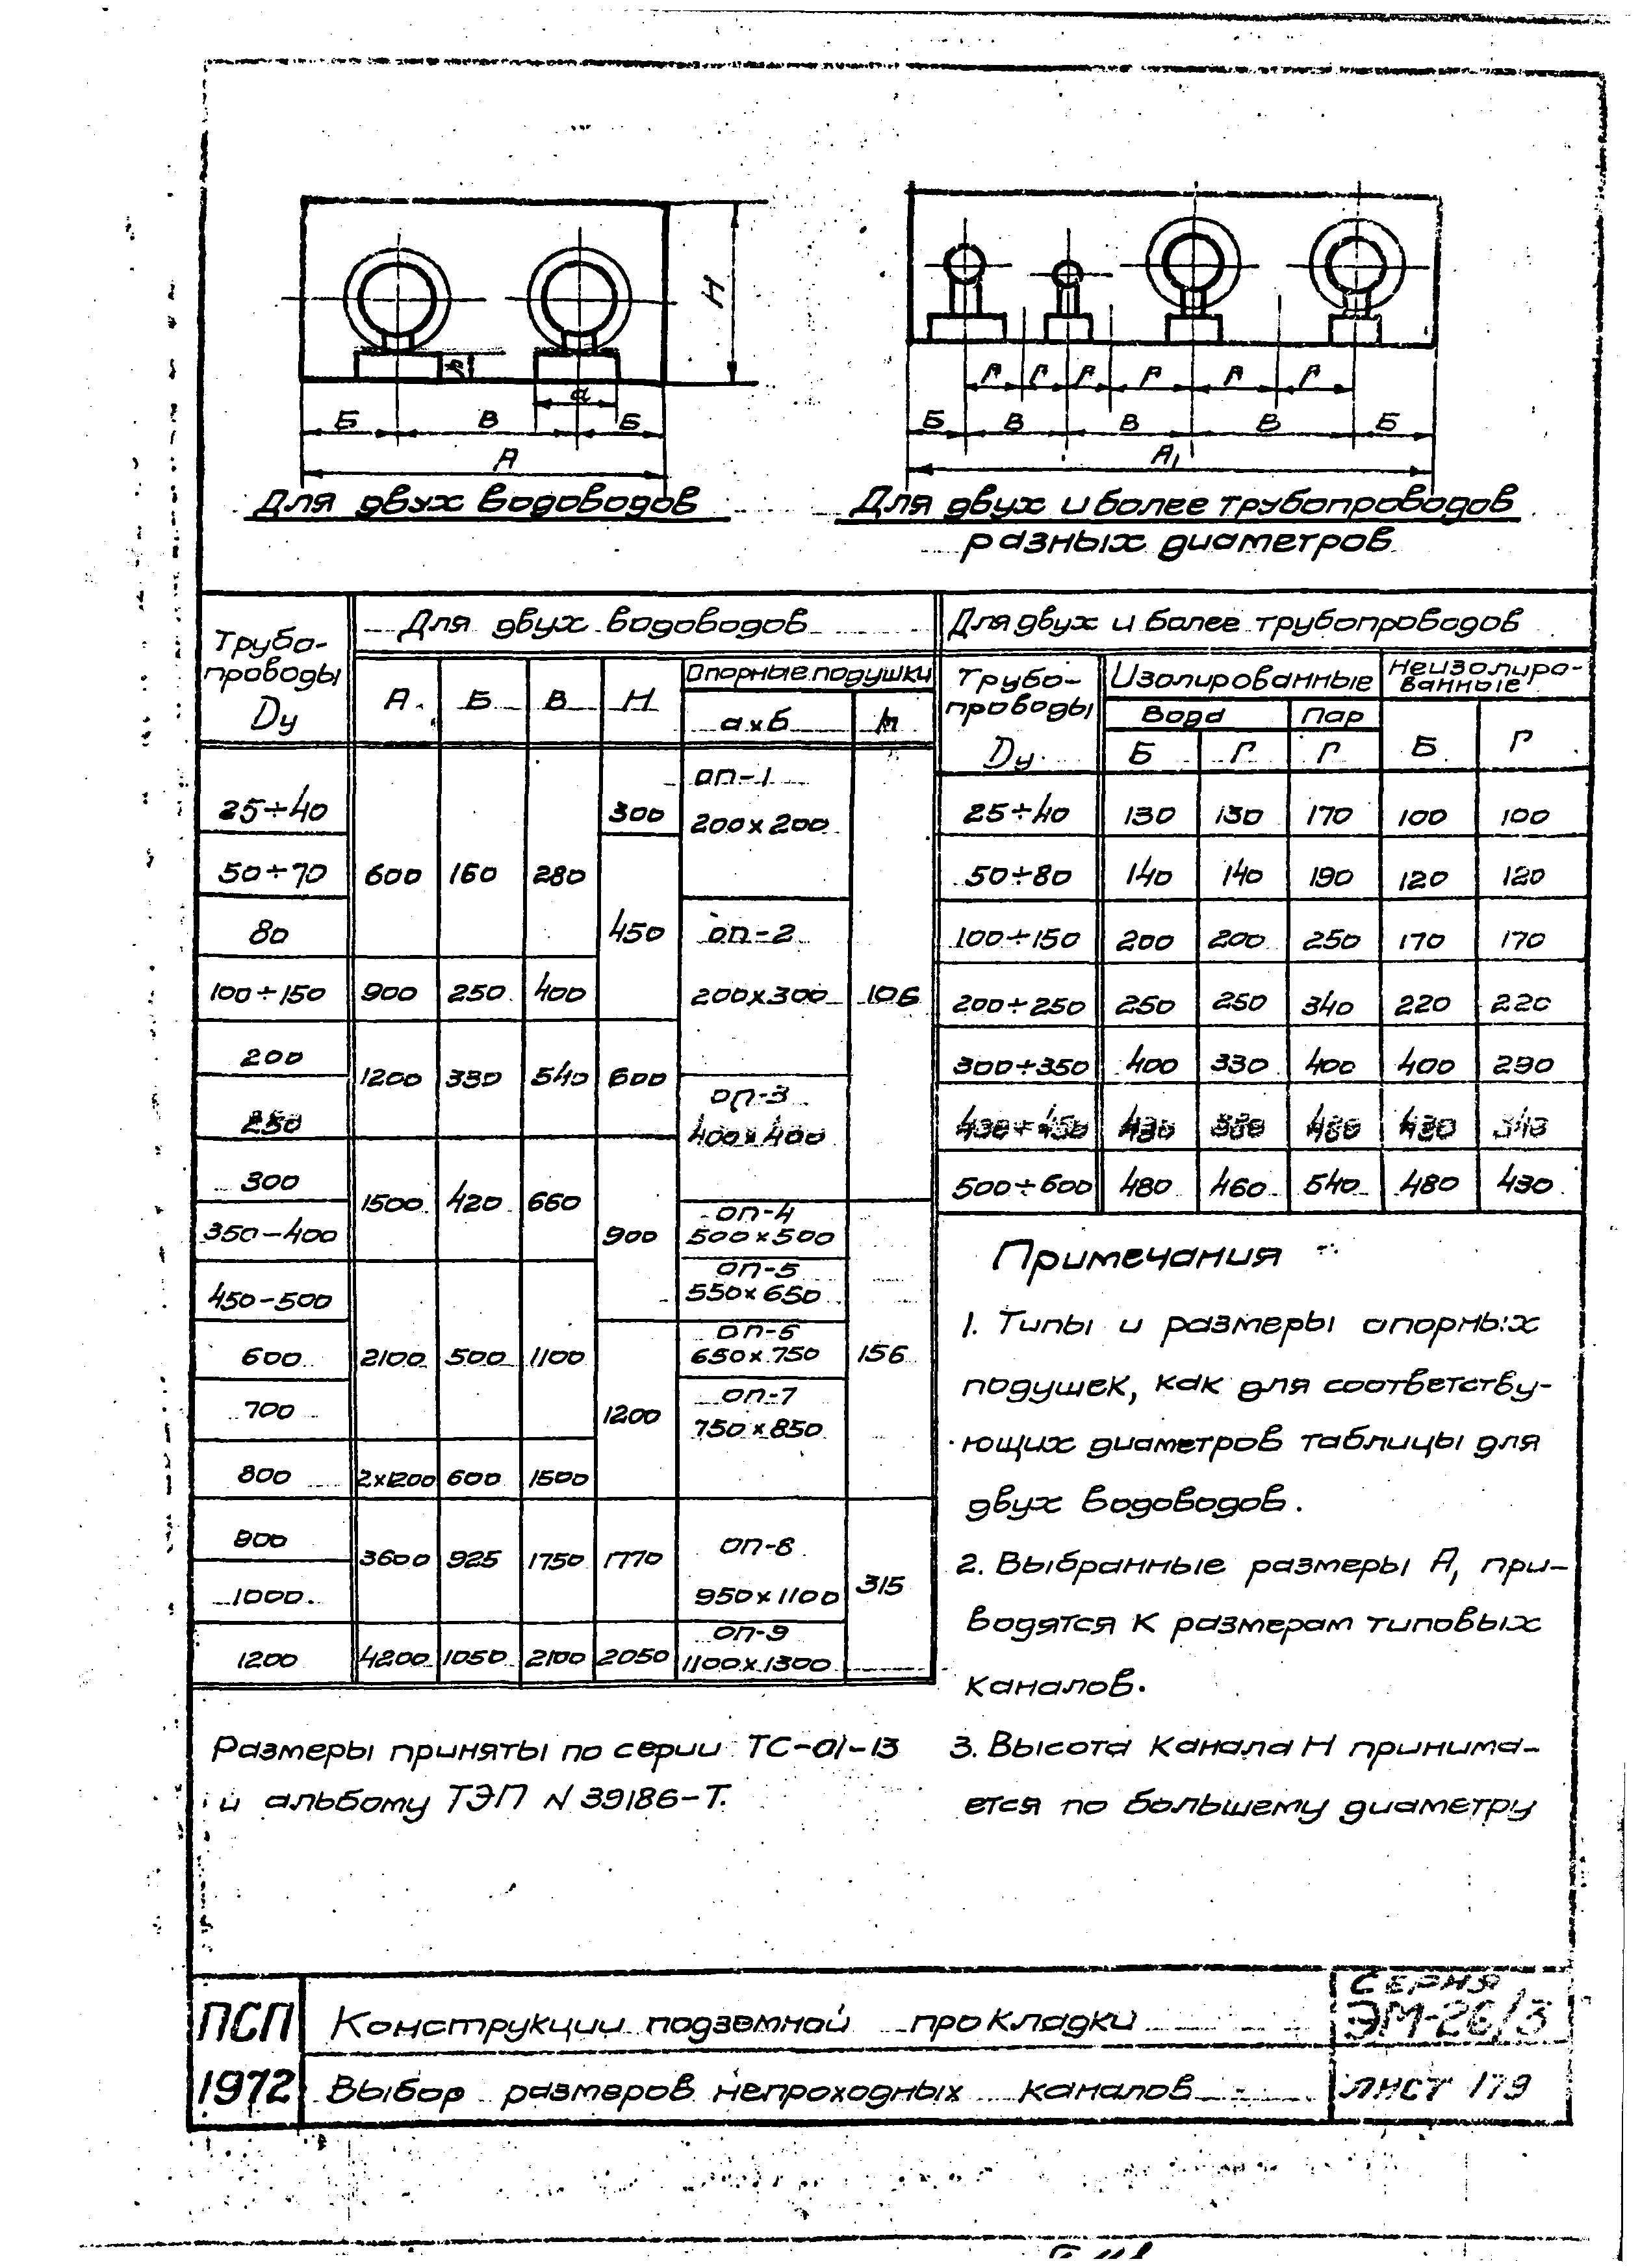 H
h
а
Б В Б
А
Для двух водоводов
Г Г Г Г Г Г
Б В В В Б
А₁
Для двух и более трубопроводов
разных диаметров
Трубо-
проводы
Dу
Для двух водоводов
А Б В Н
Опорные подушки
а×б h
25÷40 300 ОП-1 200×200
50÷70 600 160 280
80 450 ОП-2
100÷150 900 250 400 200×300 106
200
1200 330 540 600
250 ОП-3 400×400
300
1500 420 660
350-400 900 ОП-4 500×500
450-500 ОП-5 550×650
600 2100 500 1100 ОП-6 650×750 156
700 1200 ОП-7 750×850
800 2×1200 600 1500
900
3600 925 1750 1770 ОП-8
1000 950×1100 315
1200 4200 1050 2100 2050 ОП-9 1100×1300
Для двух и более трубопроводов
Трубо-
проводы
Dу
Изолированные
Неизолиро-
ванные
Вода Пар
Б Г Г Б Г
25÷40 130 130 170 100 100
50÷80 140 140 190 120 120
100÷150 200 200 250 170 170
200÷250 250 250 340 220 220
300÷350 400 330 400 400 290
500÷600 480 460 540 480 430
Примечания
1. Типы и размеры опорных
подушек, как для соответству-
ющих диаметров таблицы для
двух водоводов.
2. Выбранные размеры А₁ при-
водятся к размерам типовых
каналов.
3. Высота канала Н принима-
ется по большему диаметру
Размеры приняты по серии ТС-01-13
и альбому ТЭП N 39186-Т.
ПСП
1972
Конструкции подземной прокладки
Выбор размеров непроходных каналов
Серия
ЭМ-26/3
лист 179